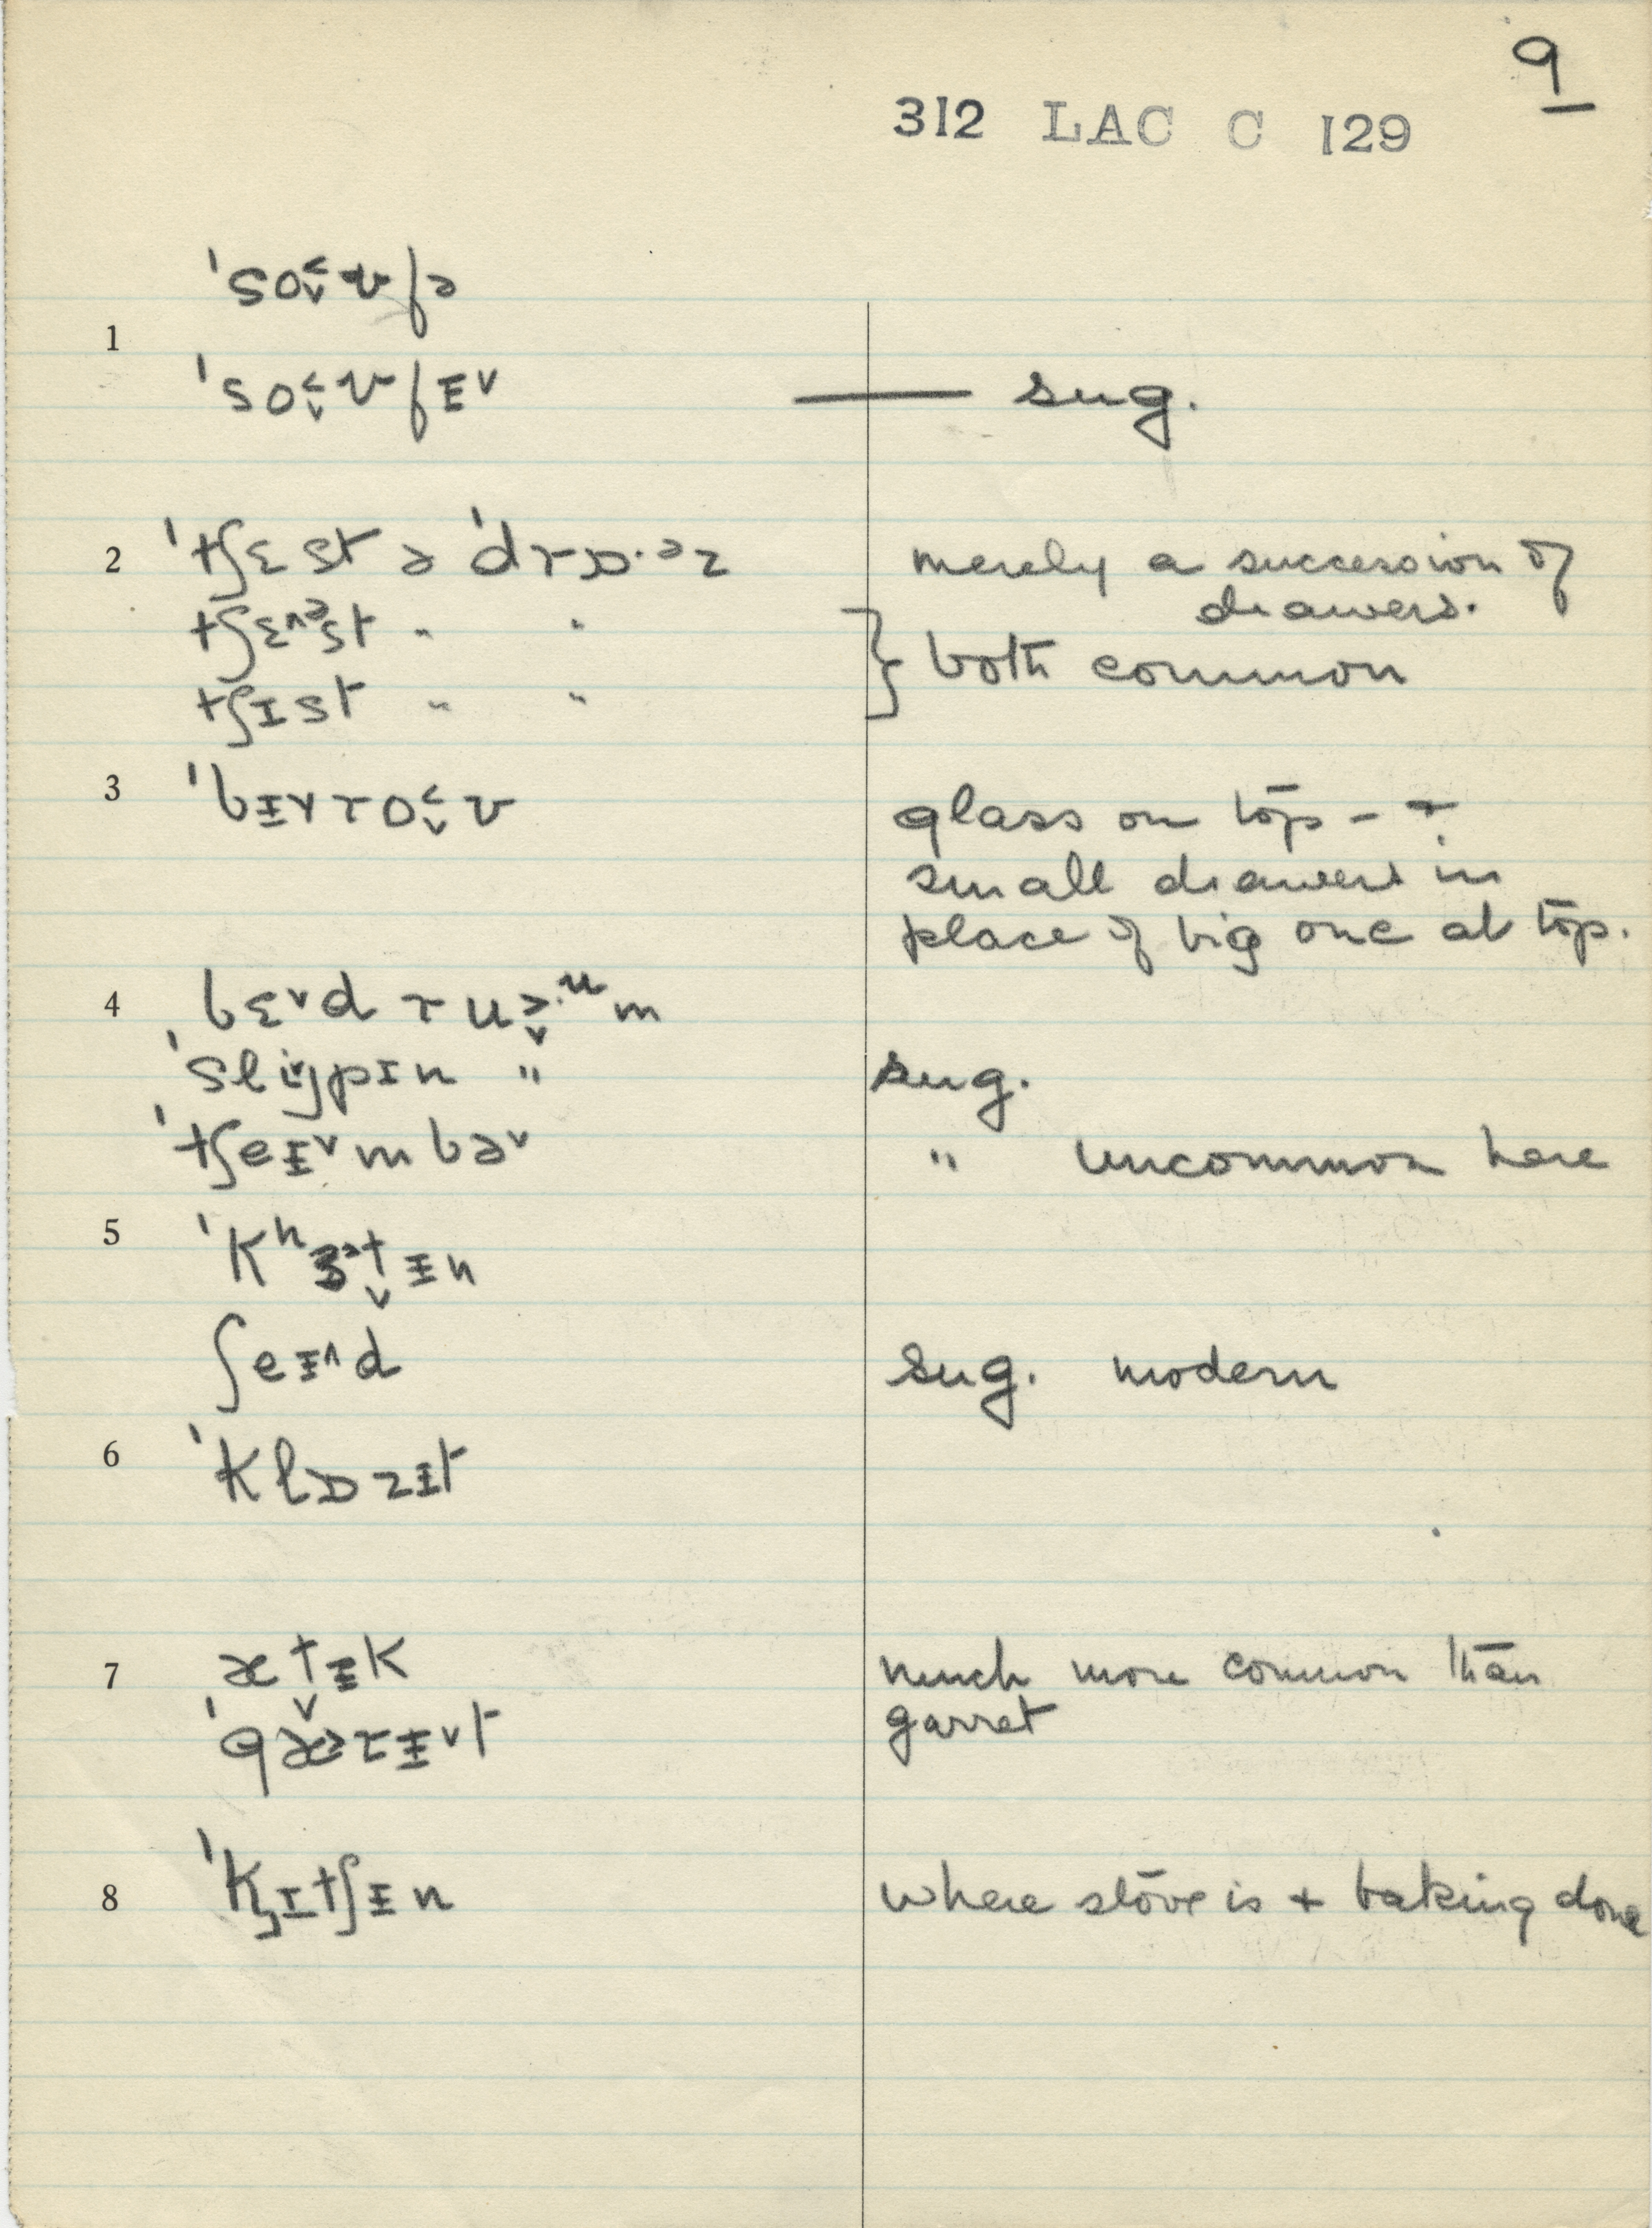 9
312 LAC C 129
ˈso˅˂ʊfə
1
ˈso˅˂ʊfɪ̵˅ — sug.
2 ˈtʃɛst ə ˈdrɒ·ᵊz merely a succession of
drawers.
tʃɛ^ᵊst " " } both common
tʃɪst " "
3 ˈbɪ̵˅ro˅˂ʊ glass on top – +
small drawers in
place of big one at top.
4 bɛ˅d ru˅˃·ᵘm
ˈslijpɪn " sug.
ˈtʃeɪ̵˅mbə˅ " uncommon here
5 ˈkʰɜ˃t̬ɪ̵n
ʃeɪ̵^d sug. modern
6 ˈklɒzɪ̵t
7 æt̬ɪ̵k much more common than
ˈgæ˃rɪ̵˅t garret
8 ˈk̡ɪtʃɪ̵n where stove is + baking done